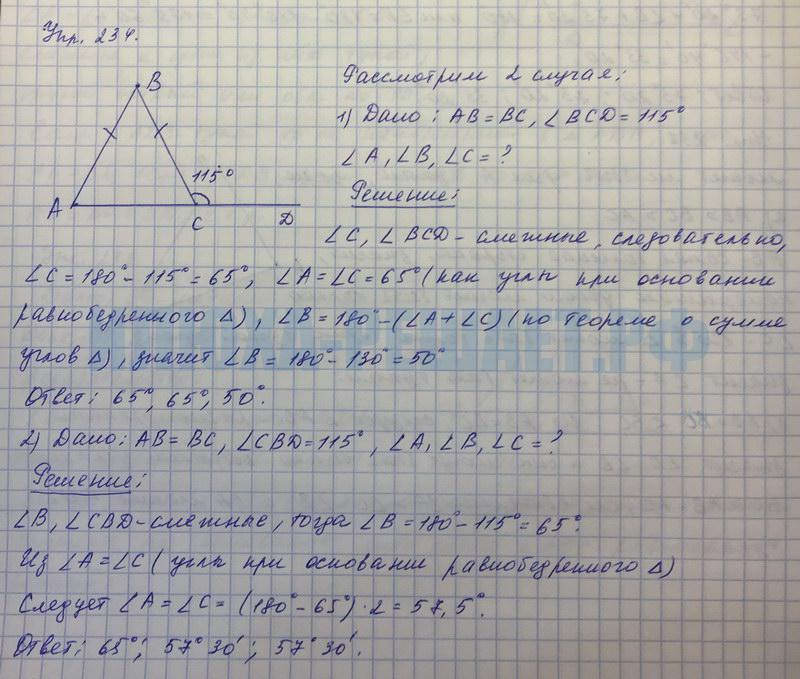 Упр. 234.
B
115°
A
C
D
Рассмотрим 2 случая:
1) Дано: AB = BC, ∠BCD = 115°
∠A, ∠B, ∠C = ?
Решение:
∠C, ∠BCD - смежные, следовательно,
∠C = 180° - 115° = 65°, ∠A = ∠C = 65° (как углы при основании
равнобедренного Δ), ∠B = 180° - (∠A + ∠C) (по теореме о сумме
углов Δ), значит ∠B = 180° - 130° = 50°
Ответ: 65°, 65°, 50°.
2) Дано: AB = BC, ∠CBD = 115°, ∠A, ∠B, ∠C = ?
Решение:
∠B, ∠CBD - смежные, тогда ∠B = 180° - 115° = 65°.
Из ∠A = ∠C (углы при основании равнобедренного Δ)
Следует ∠A = ∠C = (180° - 65°) · 2 = 57,5°.
Ответ: 65°; 57° 30'; 57° 30'.